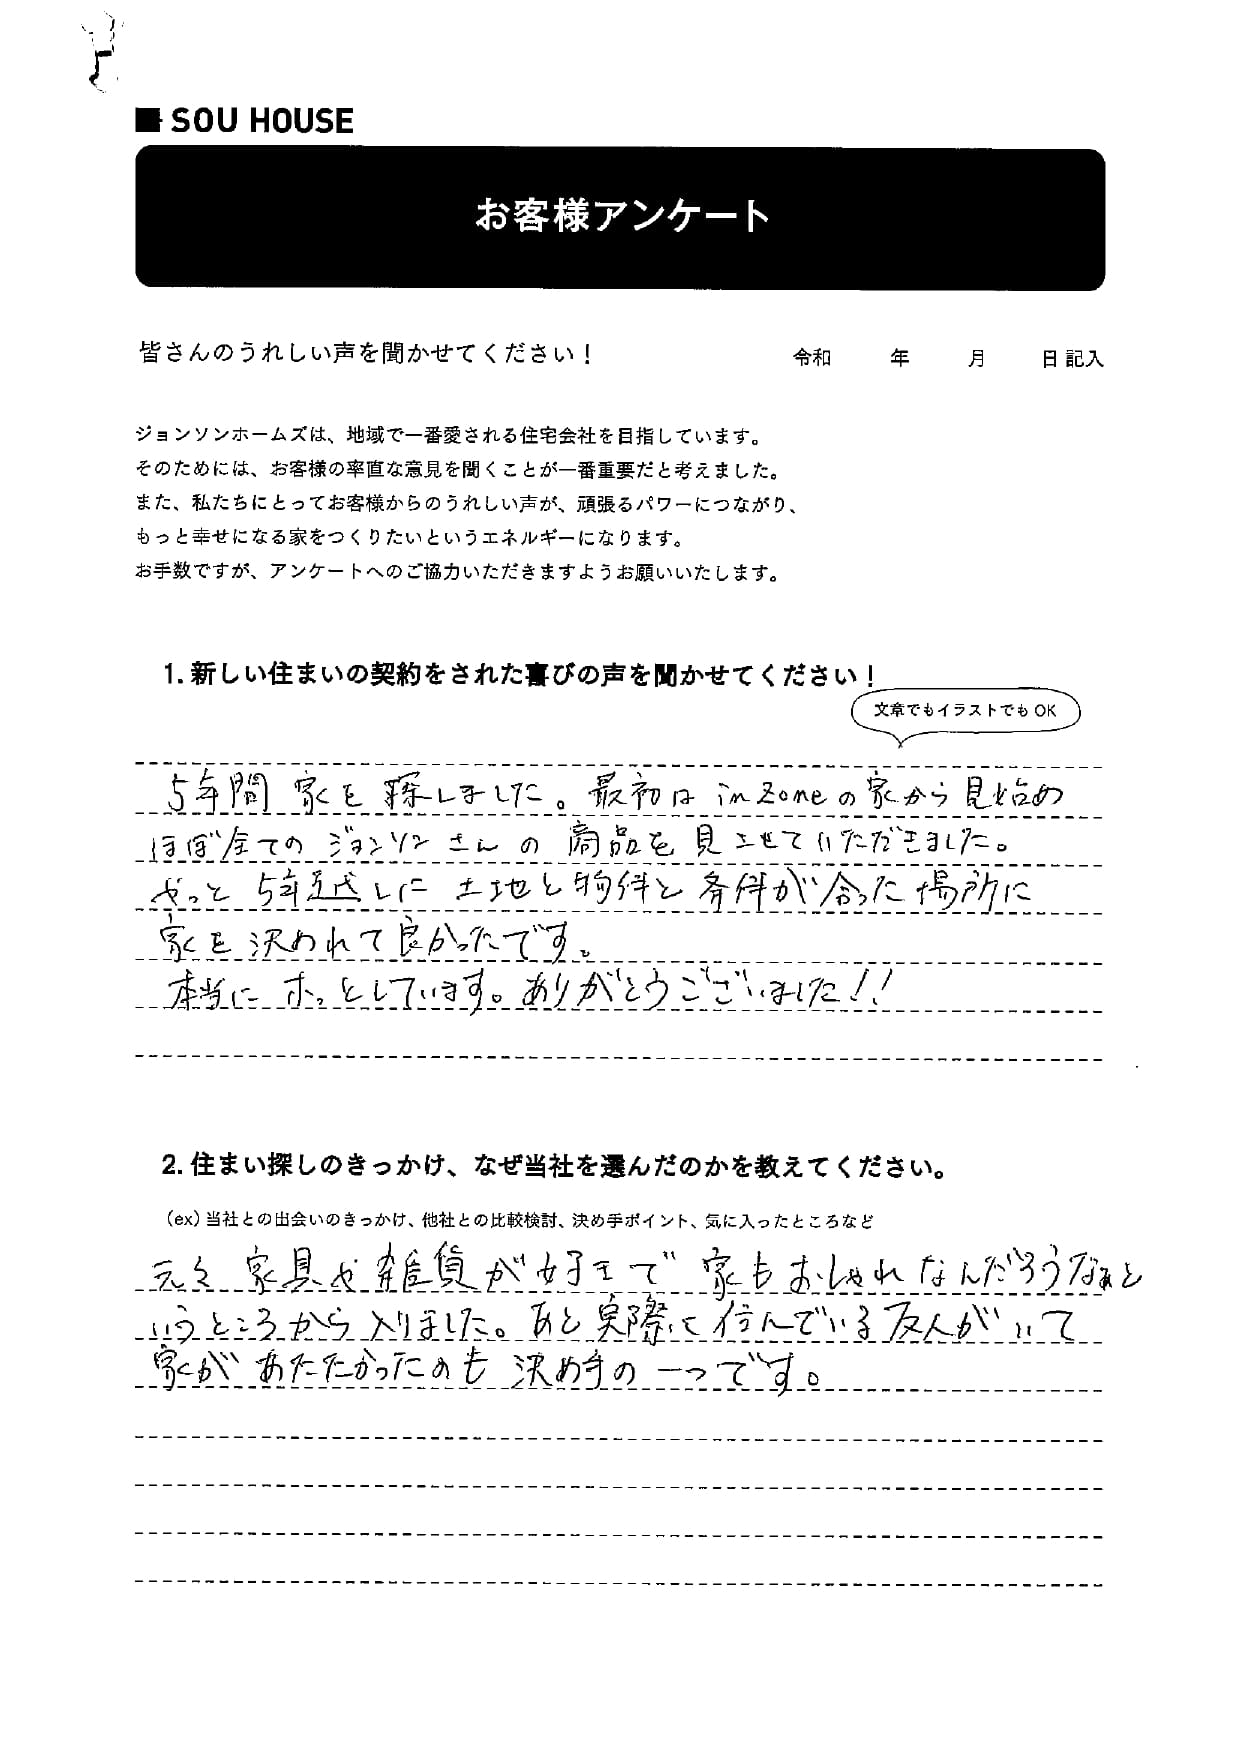 SOU HOUSE
お客様アンケート
皆さんのうれしい声を聞かせてください！
令和 年 月 日 記入
ジョンソンホームズは、地域で一番愛される住宅会社を目指しています。
そのためには、お客様の率直な意見を聞くことが一番重要だと考えました。
また、私たちにとってお客様からのうれしい声が、頑張るパワーにつながり、
もっと幸せになる家をつくりたいというエネルギーになります。
お手数ですが、アンケートへのご協力いただきますようお願いいたします。
1. 新しい住まいの契約をされた喜びの声を聞かせてください！
文章でもイラストでもOK
5年間 家を 探しました。最初は inZoneの家から見始め
ほぼ全ての ジョンソンさんの 商品を 見させていただきました。
やっと 5年越しに 土地と物件と 条件が合った場所に
家を決められて良かったです。
本当に ホッとしています。ありがとうございました!!
2. 住まい探しのきっかけ、なぜ当社を選んだのかを教えてください。
(ex) 当社との出会いのきっかけ、他社との比較検討、決め手ポイント、気に入ったところなど
元々 家具や雑貨が好きで 家もおしゃれなんだろうなぁと
いうところから入りました。あと実際に住んでいる友人がいて
家が あたたかったのも 決め手の 一つです。